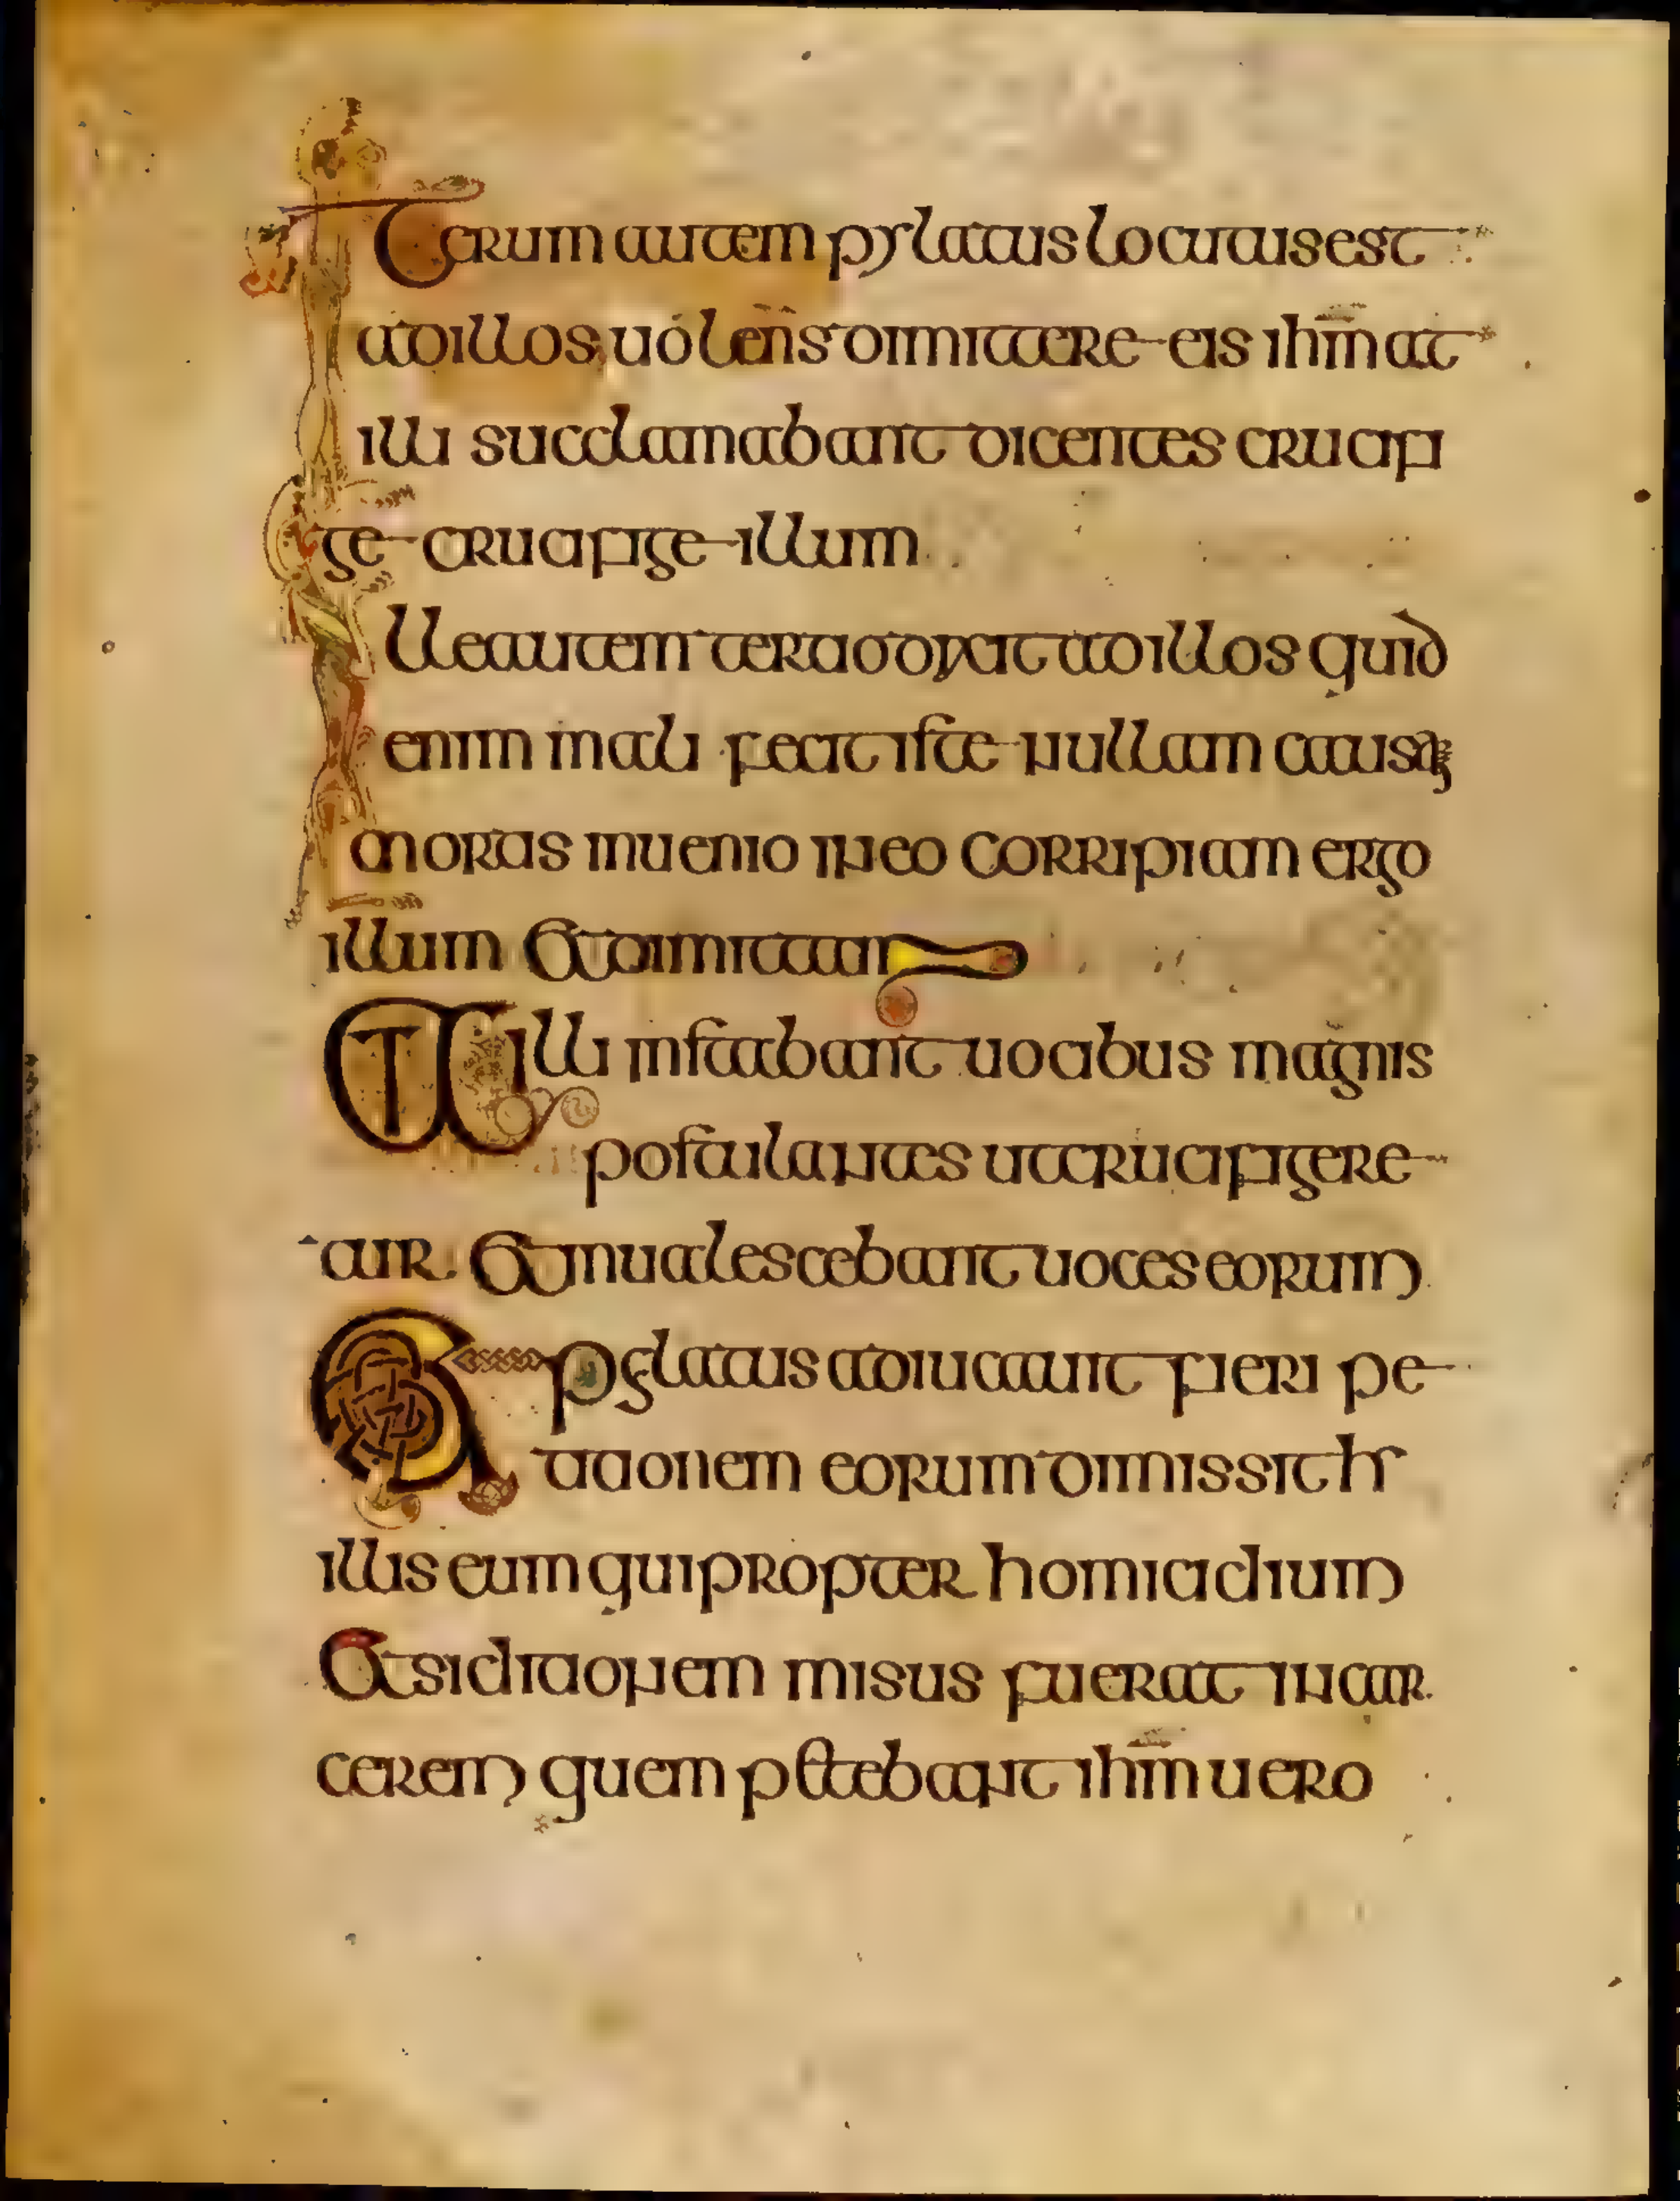 Iterum autem pylatus locutus est
ad illos uolens dimittere eis ihm̅ at
illi succlamabant dicentes crucifi
ge crucifige illum
Ille autem tertio dixit ad illos quid
enim mali fecit iste nullam causam
mortis inuenio in eo corripiam ergo
illum et dimittam
At illi instabant uocibus magnis
postulantes ut crucifigere
tur et inualescebant uoces eorum
Et pylatus adiudicauit fieri pe
titionem eorum dimissit
illis eum qui propter homicidium
et siditionem misus fuerat in car
cerem quem petebant ihm̅ uero